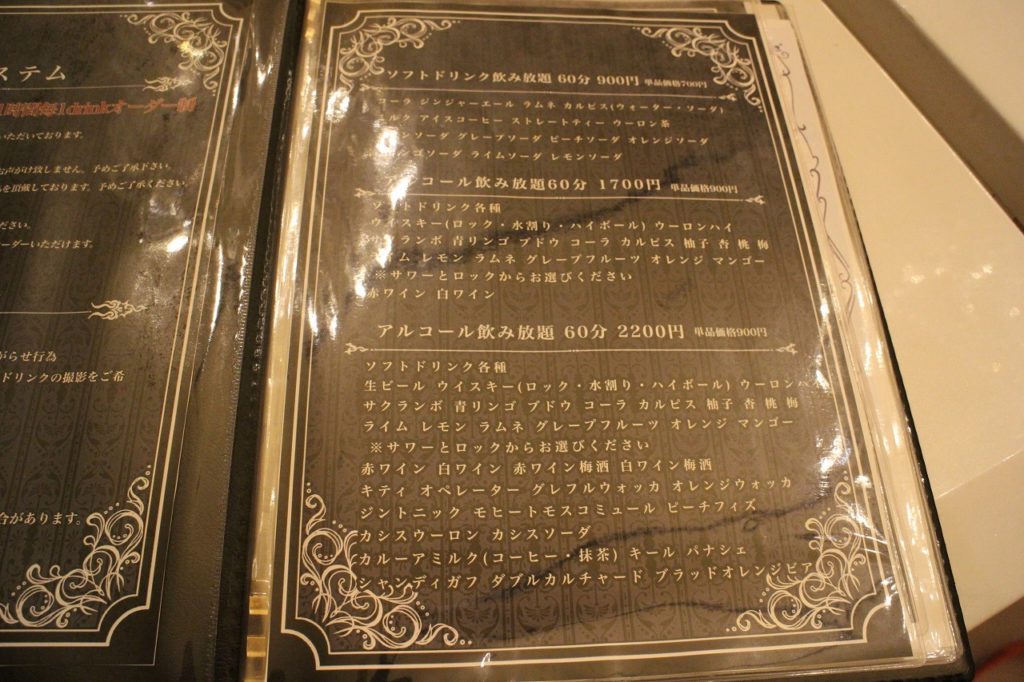 ステム
1時間毎1drinkオーダー制
いただいております。
お声がけ致しません、予めご了承下さい。
を頂戴しております。予めご了承ください。
ださい。
ーダーいただけます。
がらせ行為
ドリンクの撮影をご希
合があります。
ソフトドリンク飲み放題 60分 900円 単品価格700円
コーラ ジンジャーエール ラムネ カルピス(ウォーター・ソーダ)
ルク アイスコーヒー ストレートティー ウーロン茶
ソーダ グレープソーダ ピーチソーダ オレンジソーダ
ゴソーダ ライムソーダ レモンソーダ
コール飲み放題60分 1700円 単品価格900円
ソフトドリンク各種
ウイスキー(ロック・水割り・ハイボール) ウーロンハイ
サクランボ 青リンゴ ブドウ コーラ カルピス 柚子 杏 桃 梅
イム レモン ラムネ グレープフルーツ オレンジ マンゴー
※サワーとロックからお選びください
赤ワイン 白ワイン
アルコール飲み放題 60分 2200円 単品価格900円
ソフトドリンク各種
生ビール ウイスキー(ロック・水割り・ハイボール) ウーロンハ
サクランボ 青リンゴ ブドウ コーラ カルピス 柚子 杏 桃 梅
ライム レモン ラムネ グレープフルーツ オレンジ マンゴー
※サワーとロックからお選びください
赤ワイン 白ワイン 赤ワイン梅酒 白ワイン梅酒
キティ オペレーター グレフルウォッカ オレンジウォッカ
ジントニック モヒートモスコミュール ピーチフィズ
カシスウーロン カシスソーダ
カルーアミルク(コーヒー・抹茶) キール パナシェ
シャンディガフ ダブルカルチャード ブラッドオレンジビア